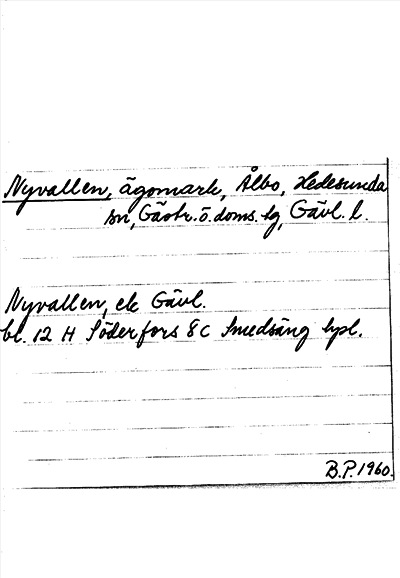 Nyvallen, ägomark, Ålbo, Hedesunda
sn, Gästr. ö. doms. tg, Gävl. l.
Nyvallen, ek Gävl.
bl. 12 H Söderfors 8 C Smedsäng hpl.
B.P. 1960.